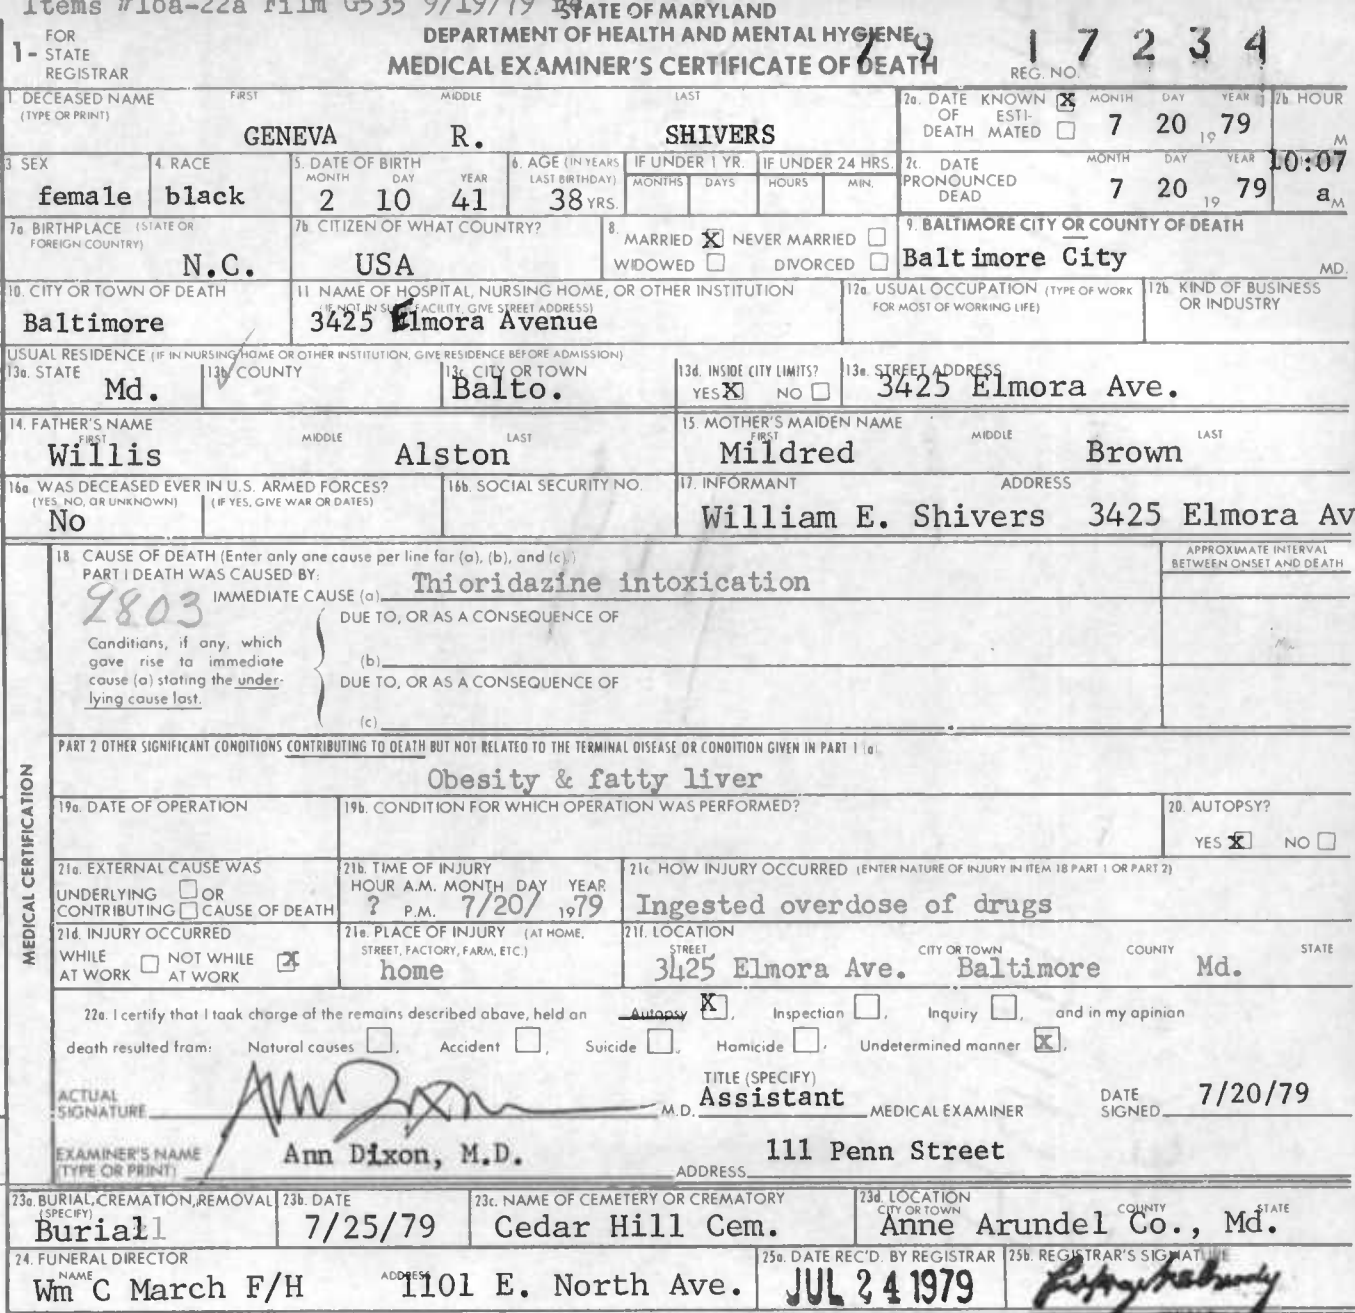 Items #18a-22a Film G535 9/19/79
STATE OF MARYLAND
DEPARTMENT OF HEALTH AND MENTAL HYGIENE
MEDICAL EXAMINER'S CERTIFICATE OF DEATH
1- FOR STATE REGISTRAR
79 17234
REG. NO.
1 DECEASED NAME (TYPE OR PRINT) FIRST MIDDLE LAST
GENEVA R. SHIVERS
2a. DATE OF DEATH KNOWN X ESTIMATED MONTH DAY YEAR 2b HOUR
7 20 1979 M
3 SEX 4. RACE 5. DATE OF BIRTH MONTH DAY YEAR 6. AGE (IN YEARS LAST BIRTHDAY) IF UNDER 1 YR. MONTHS DAYS IF UNDER 24 HRS. HOURS MIN.
female black 2 10 41 38 YRS.
2c. DATE PRONOUNCED DEAD MONTH DAY YEAR
7 20 1979 10:07 a M
7a. BIRTHPLACE (STATE OR FOREIGN COUNTRY)
N.C.
7b. CITIZEN OF WHAT COUNTRY?
USA
8. MARRIED X NEVER MARRIED
WIDOWED DIVORCED
9. BALTIMORE CITY OR COUNTY OF DEATH
Baltimore City MD.
10. CITY OR TOWN OF DEATH
Baltimore
11 NAME OF HOSPITAL, NURSING HOME, OR OTHER INSTITUTION
(IF NOT IN SUCH FACILITY, GIVE STREET ADDRESS)
3425 Elmora Avenue
12a. USUAL OCCUPATION (TYPE OF WORK FOR MOST OF WORKING LIFE)
12b. KIND OF BUSINESS OR INDUSTRY
USUAL RESIDENCE (IF IN NURSING HOME OR OTHER INSTITUTION, GIVE RESIDENCE BEFORE ADMISSION)
13a. STATE 13b. COUNTY 13c. CITY OR TOWN 13d. INSIDE CITY LIMITS? 13e. STREET ADDRESS
Md. Balto. YES X NO 3425 Elmora Ave.
14. FATHER'S NAME FIRST MIDDLE LAST
Willis Alston
15. MOTHER'S MAIDEN NAME FIRST MIDDLE LAST
Mildred Brown
16a WAS DECEASED EVER IN U.S. ARMED FORCES?
(YES, NO, OR UNKNOWN) (IF YES, GIVE WAR OR DATES)
No
16b. SOCIAL SECURITY NO.
17. INFORMANT ADDRESS
William E. Shivers 3425 Elmora Av
MEDICAL CERTIFICATION
18. CAUSE OF DEATH (Enter only one cause per line for (a), (b), and (c).)
APPROXIMATE INTERVAL BETWEEN ONSET AND DEATH
PART I DEATH WAS CAUSED BY:
IMMEDIATE CAUSE (a) Thioridazine intoxication
9803
DUE TO, OR AS A CONSEQUENCE OF
Conditions, if any, which gave rise to immediate cause (a) stating the underlying cause last.
(b)
DUE TO, OR AS A CONSEQUENCE OF
(c)
PART 2 OTHER SIGNIFICANT CONDITIONS CONTRIBUTING TO DEATH BUT NOT RELATED TO THE TERMINAL DISEASE OR CONDITION GIVEN IN PART 1 (a)
Obesity & fatty liver
19a. DATE OF OPERATION 19b. CONDITION FOR WHICH OPERATION WAS PERFORMED? 20. AUTOPSY?
YES X NO
21a. EXTERNAL CAUSE WAS
UNDERLYING OR
CONTRIBUTING CAUSE OF DEATH
21b. TIME OF INJURY
HOUR A.M. MONTH DAY YEAR
? P.M. 7/20/ 1979
21c HOW INJURY OCCURRED (ENTER NATURE OF INJURY IN ITEM 18 PART 1 OR PART 2)
Ingested overdose of drugs
21d. INJURY OCCURRED
WHILE AT WORK NOT WHILE AT WORK X
21e. PLACE OF INJURY (AT HOME, STREET, FACTORY, FARM, ETC.)
home
21f. LOCATION
STREET CITY OR TOWN COUNTY STATE
3425 Elmora Ave. Baltimore Md.
22a. I certify that I took charge of the remains described above, held an Autopsy X, Inspection , Inquiry , and in my opinion
death resulted from: Natural causes , Accident , Suicide , Homicide , Undetermined manner X.
ACTUAL SIGNATURE M.D.
TITLE (SPECIFY)
Assistant MEDICAL EXAMINER
DATE SIGNED 7/20/79
EXAMINER'S NAME (TYPE OR PRINT) Ann Dixon, M.D.
ADDRESS 111 Penn Street
23a. BURIAL, CREMATION, REMOVAL (SPECIFY) 23b. DATE 23c. NAME OF CEMETERY OR CREMATORY 23d. LOCATION CITY OR TOWN COUNTY STATE
Burial 7/25/79 Cedar Hill Cem. Anne Arundel Co., Md.
24. FUNERAL DIRECTOR
NAME Wm C March F/H ADDRESS 1101 E. North Ave.
25a. DATE REC'D. BY REGISTRAR
JUL 24 1979
25b. REGISTRAR'S SIGNATURE